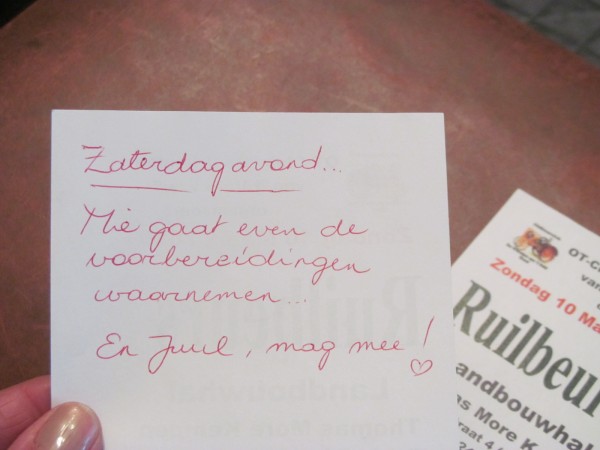 Zaterdagavond...
Mie gaat even de
voorbereidingen
waarnemen...
En Juul, mag mee!♡
OT-C
van
Zondag 10 Ma
Ruilbeur
andbouwhal
as More K
raat 4